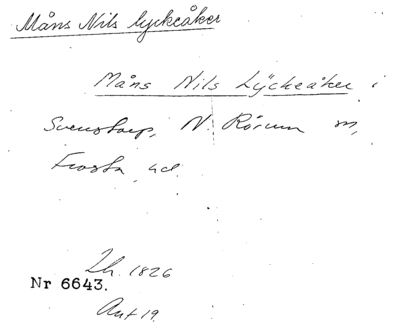 Måns Nils lyckeåker
Måns Nils Lyckeåker i
Svenstorp, N. Rörum sn,
Frosta hd.
Lh. 1826
Nr 6643.
Akt 19.